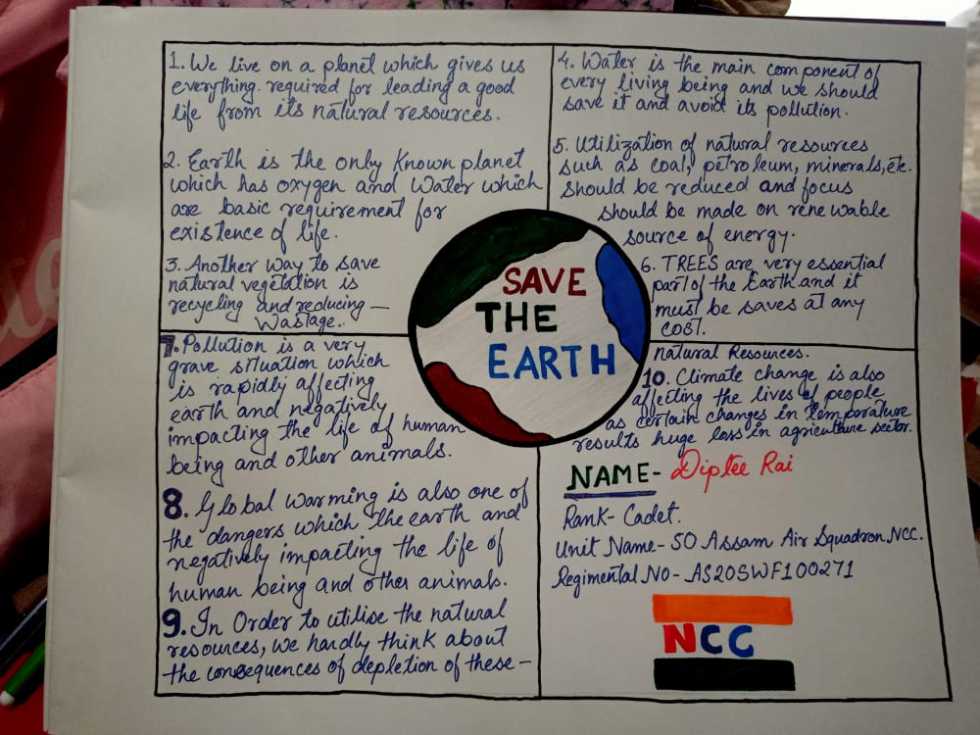 1. We live on a planet which gives us
everything. required for leading a good
life from its natural resources.
2. Earth is the only known planet
which has oxygen and Water which
are basic requirement for
existence of life.
3. Another way to save
natural vegetation is
recycling and reducing -
Wastage..
4. Water is the main component of
every living being and we should
save it and avoid its pollution.
5. Utilization of natural resources
such as coal, petroleum, minerals, etc.
should be reduced and focus
should be made on renewable
source of energy.
6. TREES are very essential
part of the Earth and it
must be saves at any
COST.
SAVE
THE
EARTH
7. Pollution is a very
grave situation which
is rapidly affecting
earth and negatively
impacting the life of human
being and other animals.
8. Global warming is also one of
the dangers which the earth and
negatively impacting the life of
human being and other animals.
9. In Order to utilise the natural
resources, we hardly think about
the consequences of depletion of these -
natural Resources.
10. Climate change is also
affecting the lives of people
as certain changes in temparature
results huge loss in agriculture sector.
NAME - Diptee Rai
Rank - Cadet.
Unit Name - 50 Assam Air Squadron NCC.
Regimental No - AS20SWF100271
NCC